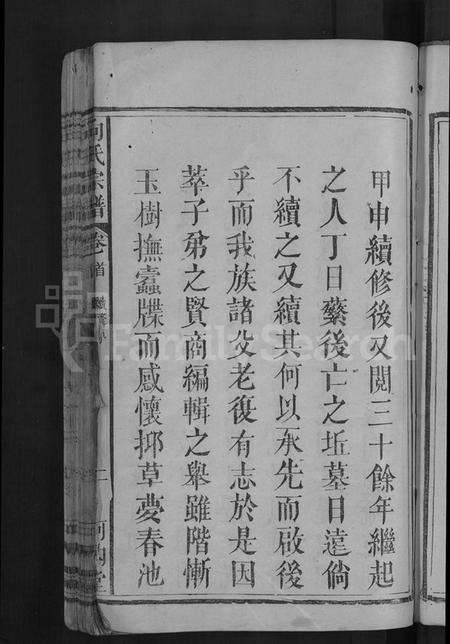 甲申續修後又閲三十餘年繼起
之人丁日蘩後亡之坵墓日遠倘
不續之又續其何以承先而啟後
乎而我族諸父老復有志於是因
萃子弟之賢商編輯之舉雖階慚
玉樹撫蠹牒而感懷抑草夢春池
向氏宗譜 卷首
二
河內堂
FamilySearch